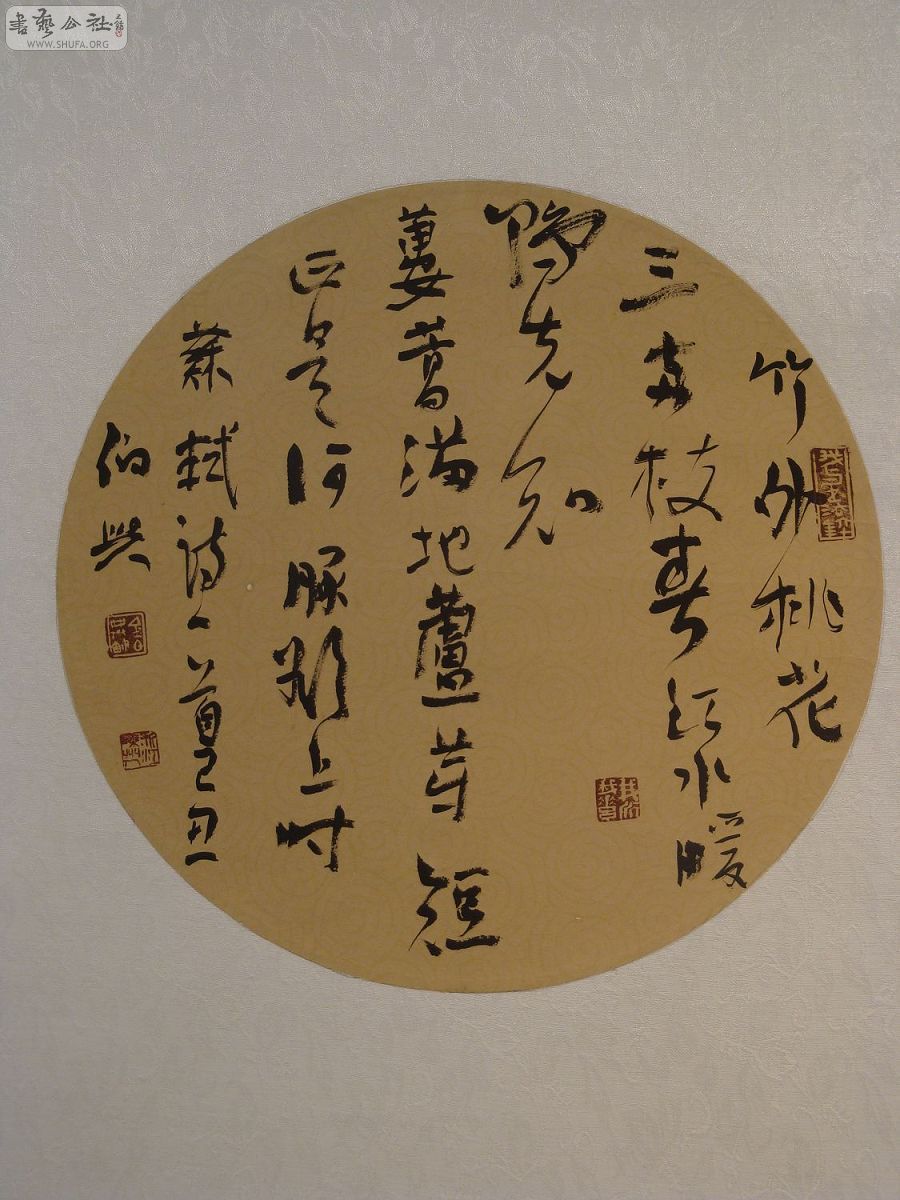 書藝公社
WWW.SHUFA.ORG
竹外桃花
三兩枝春江水暖
鴨先知
蔞蒿滿地蘆芽短
正是河豚欲上時
蘇軾詩一首己丑
伯興